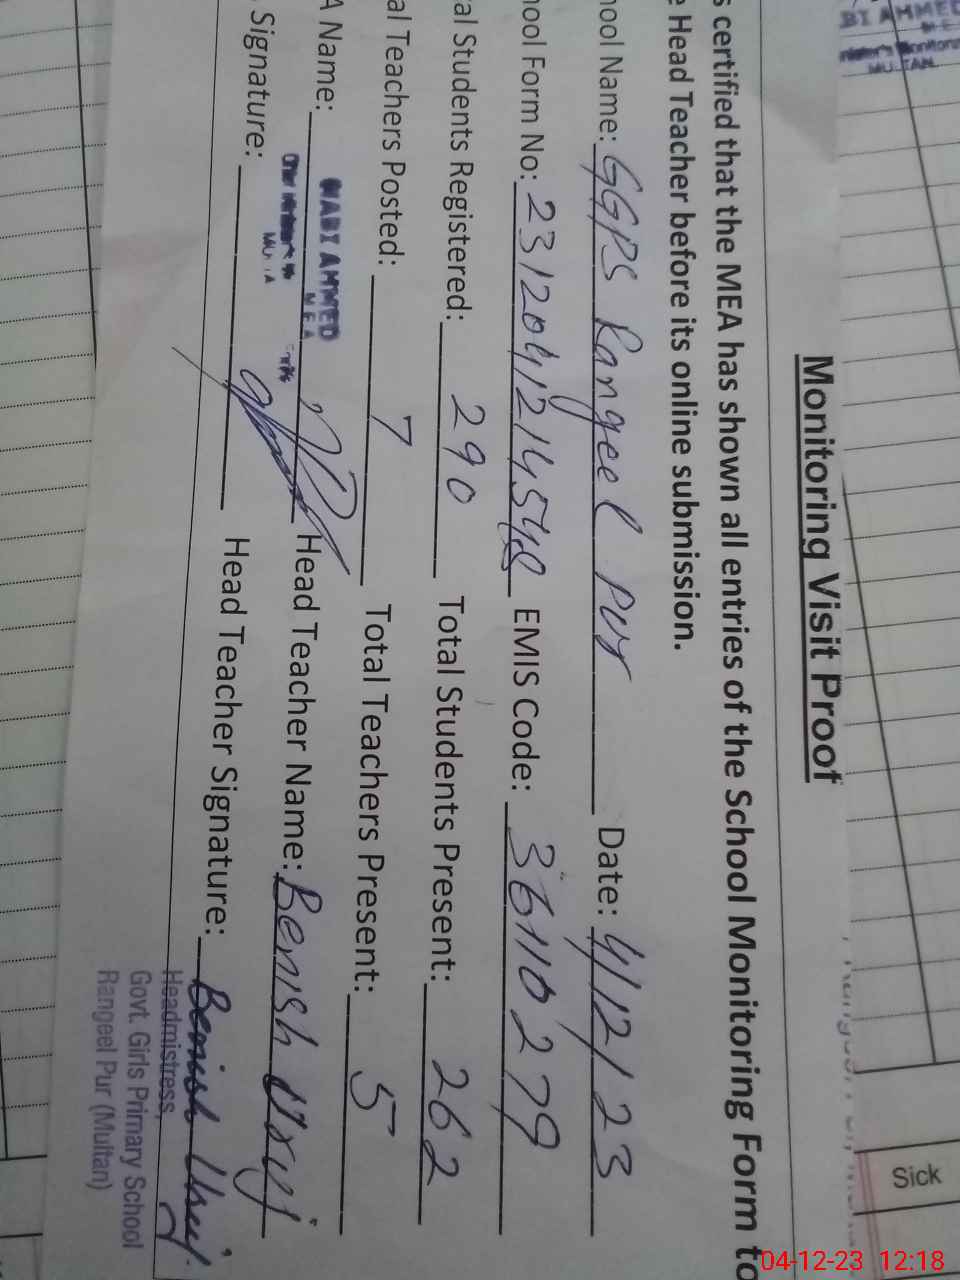 Monitoring Visit Proof
s certified that the MEA has shown all entries of the School Monitoring Form to
e Head Teacher before its online submission.
hool Name: GGPS Rangeel Pur Date: 4/12/23
hool Form No: EMIS Code: 36110279
al Students Registered: 290 Total Students Present: 262
al Teachers Posted: 7 Total Teachers Present: 5
A Name: Head Teacher Name: Benish
NABI AHMED
MEA
Signature: Head Teacher Signature: Benish
Headmistress
Govt. Girls Primary School
Rangeel Pur (Multan)
BI AHMED
MULTAN
Sick
04-12-23 12:18